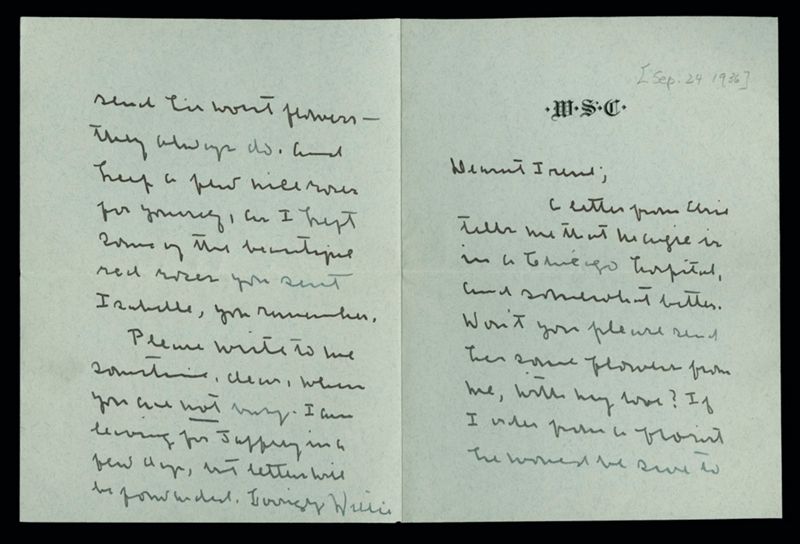 [Sep. 24 1936]
·W·S·C·
Dearest Irene;
A letter from Elsie
tells me that Margie is
in a Chicago hospital,
and somewhat better.
Won't you please send
her some flowers from
me, with my love? If
I order from a florist
he would be sure to
send his worst flowers—
they always do. And
keep a few nice roses
for yourself, as I kept
some of the beautiful
red roses you sent
Isabelle, you remember.
Please write to me
sometime, dear, when
you are not busy. I am
leaving for Jaffrey in a
few days, but letters will
be forwarded. Lovingly Willie